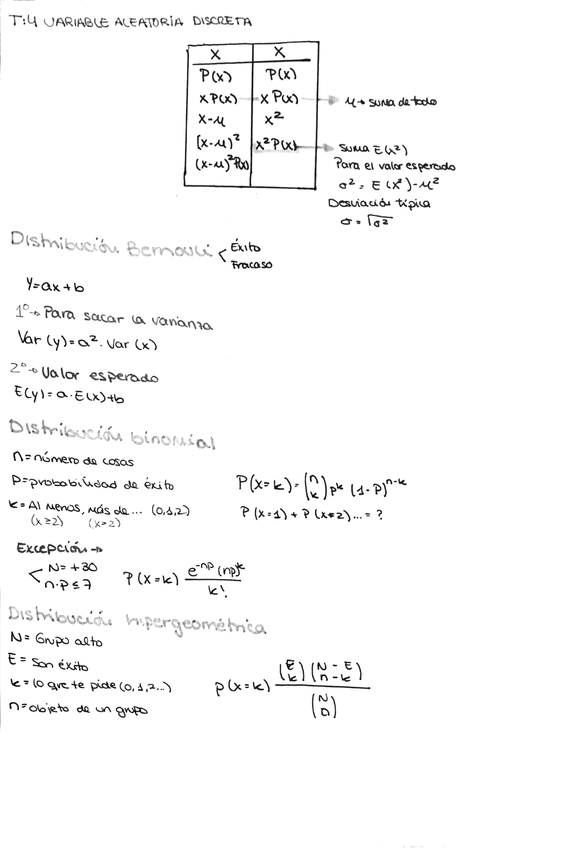 T:4 VARIABLE ALEATORIA DISCRETA
X X
P(x) P(x)
x P(x) x P(x) → μ → suma de todo
x-μ x²
(x-μ)² x²P(x) → suma E(x²)
(x-μ)²P(x) Para el valor esperado
σ² = E(x²)-μ²
Desviación típica
σ = √σ²
Distribución Bernouli < Éxito
Fracaso
Y=ax+b
1º→ Para sacar la varianza
Var (y)=a². Var (x)
2º→ Valor esperado
E(y)=a·E(x)+b
Distribución binomial
n=número de cosas
P=probabilidad de éxito P(x=k)=(n k) pᵏ (1-P)ⁿ⁻ᵏ
k= Al menos, más de... (0,1,2) P(x=1) + P(x=2)...= ?
(x≥2) (x>2)
Excepción→
N= +30
n·p≤7 P(x=k) e⁻ⁿᵖ (np)ᵏ / k!
Distribución hipergeométrica
N= Grupo alto
E= Son éxito
k=lo que te pide (0,1,2...) p(x=k) (E k) (N-E n-k) / (N n)
n=objeto de un grupo